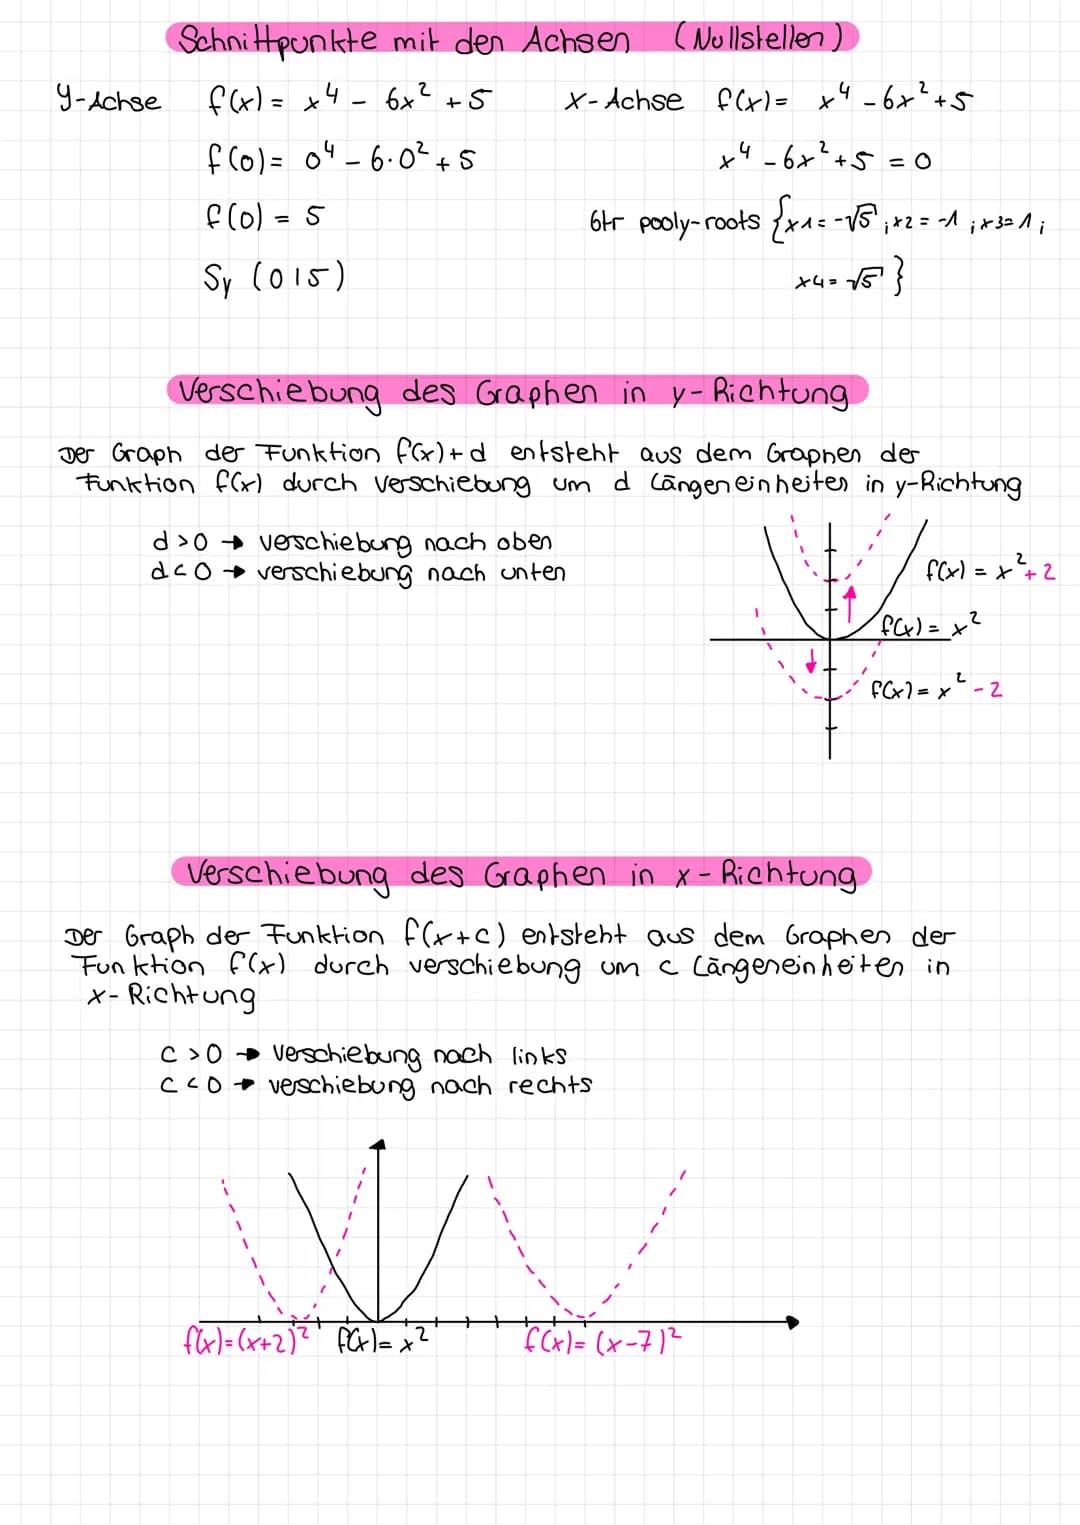 Schnittpunkte mit den Achsen (Nullstellen)
y-Achse f(x) = x⁴ - 6x² + 5
f(0) = 0⁴ - 6·0² + 5
f(0) = 5
Sy (0|5)
x-Achse f(x) = x⁴ - 6x² + 5
x⁴ - 6x² + 5 = 0
GTR pooly-roots {x1 = -√5 ; x2 = -1 ; x3 = 1 ;
x4 = √5 }
Verschiebung des Graphen in y-Richtung
Der Graph der Funktion f(x)+d entsteht aus dem Graphen der
Funktion f(x) durch verschiebung um d Längeneinheiten in y-Richtung
d > 0 → verschiebung nach oben
d < 0 → verschiebung nach unten
f(x) = x² + 2
f(x) = x²
f(x) = x² - 2
Verschiebung des Graphen in x-Richtung
Der Graph der Funktion f(x+c) entsteht aus dem Graphen der
Funktion f(x) durch verschiebung um c Längeneinheiten in
x-Richtung
c > 0 → verschiebung nach links
c < 0 → verschiebung nach rechts
f(x) = (x+2)² f(x) = x² f(x) = (x-7)²